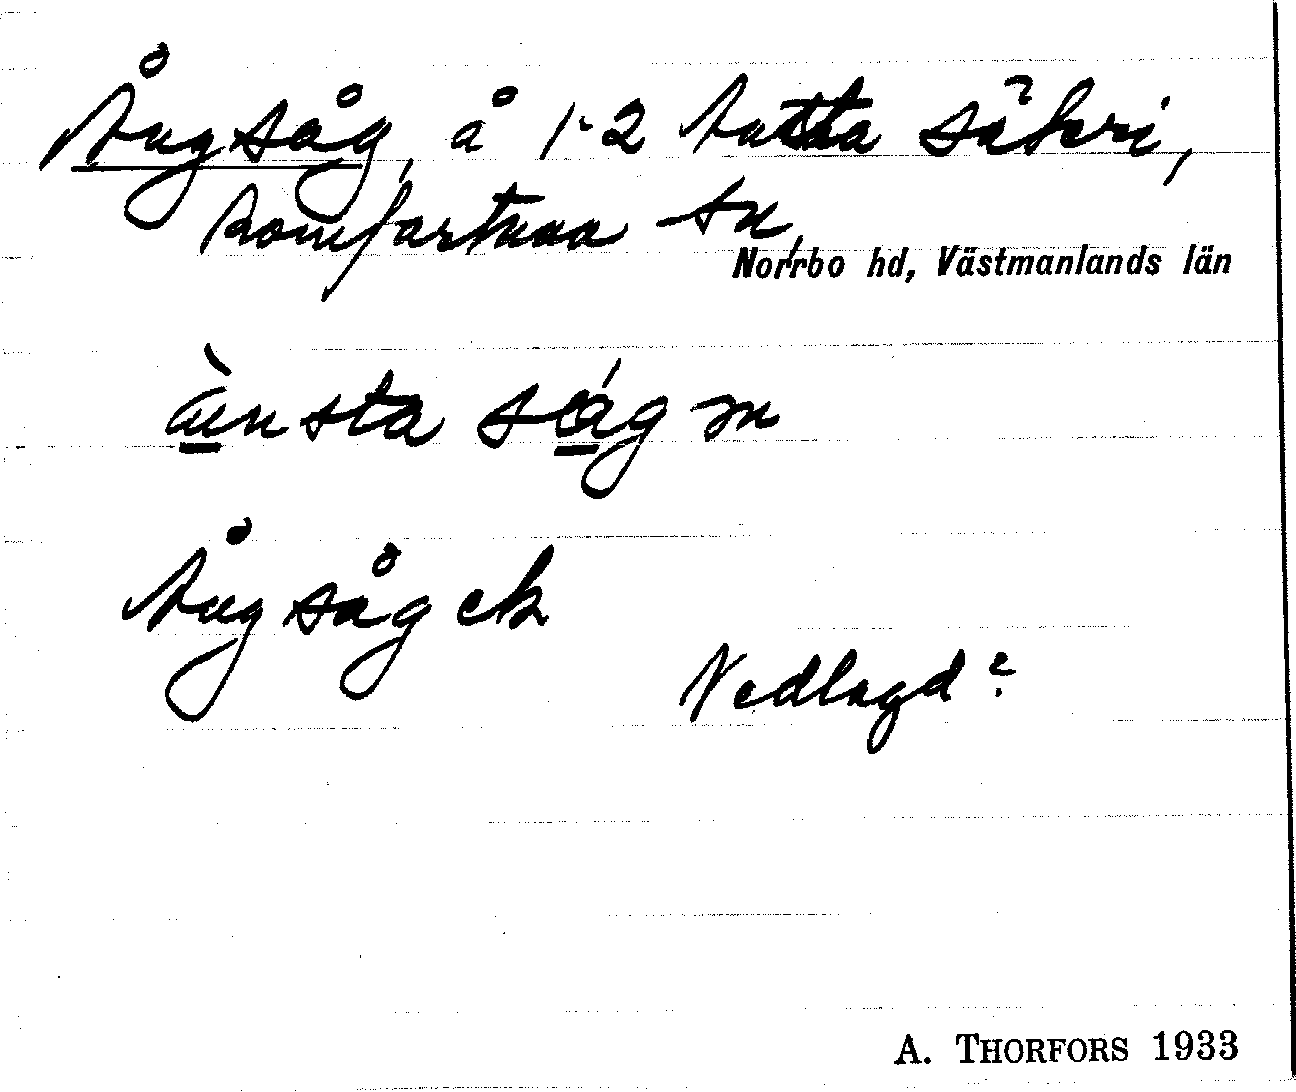 Ångsåg, å 1-2 Antta säteri,
Romfartuna sn,
Norrbo hd, Västmanlands län
ànsta ság m
Ångsåg ek
Nedlagd?
A. THORFORS 1933